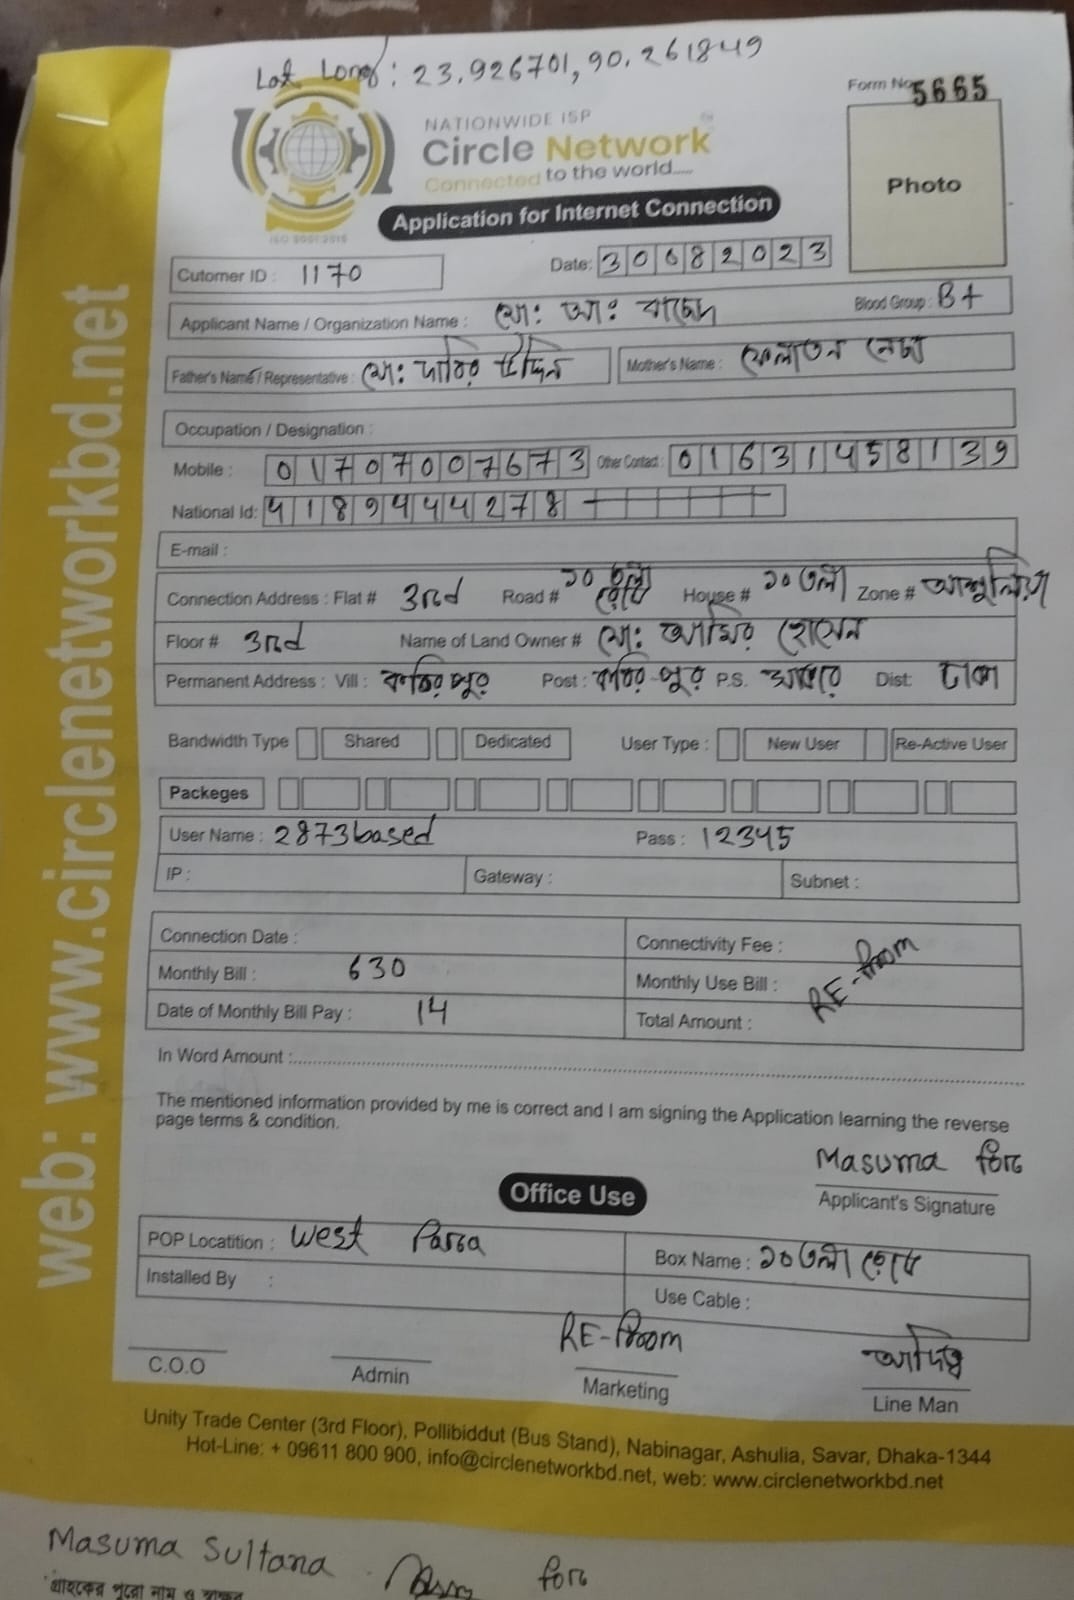 Lat Long: 23.926701, 90.261849
Form No 5665
NATIONWIDE ISP
Circle Network
Connected to the world.....
ISO 9001:2015
Photo
Application for Internet Connection
Cutomer ID : 1170 Date: 30082023
Applicant Name / Organization Name : মো: আ: বাছেদ Blood Group : B+
Father's Name / Representative : মো: উদ্দিন Mother's Name :
Occupation / Designation :
Mobile : 01707007673 Other Contact : 01631458139
National Id: 4189444278
E-mail :
Connection Address : Flat # 3rd Road # ১০ তলা রোড House # ১০ তলা Zone # আশুলিয়া
Floor # 3rd Name of Land Owner # মো: আমির হোসেন
Permanent Address : Vill : Post : P.S. সাভার Dist: ঢাকা
Bandwidth Type Shared Dedicated User Type : New User Re-Active User
Packeges
User Name : 2873based Pass : 12345
IP : Gateway : Subnet :
Connection Date : Connectivity Fee :
Monthly Bill : 630 Monthly Use Bill :
Date of Monthly Bill Pay : 14 Total Amount :
In Word Amount :
The mentioned information provided by me is correct and I am signing the Application learning the reverse
page terms & condition.
Masuma
Applicant's Signature
Office Use
POP Locatition : West Parra Box Name : ১০ তলা রোড
Installed By : Use Cable :
C.O.O Admin Marketing Line Man
Unity Trade Center (3rd Floor), Pollibiddut (Bus Stand), Nabinagar, Ashulia, Savar, Dhaka-1344
Hot-Line: + 09611 800 900, info@circlenetworkbd.net, web: www.circlenetworkbd.net
web: www.circlenetworkbd.net
Masuma Sultana
গ্রাহকের পুরো নাম ও স্বাক্ষর